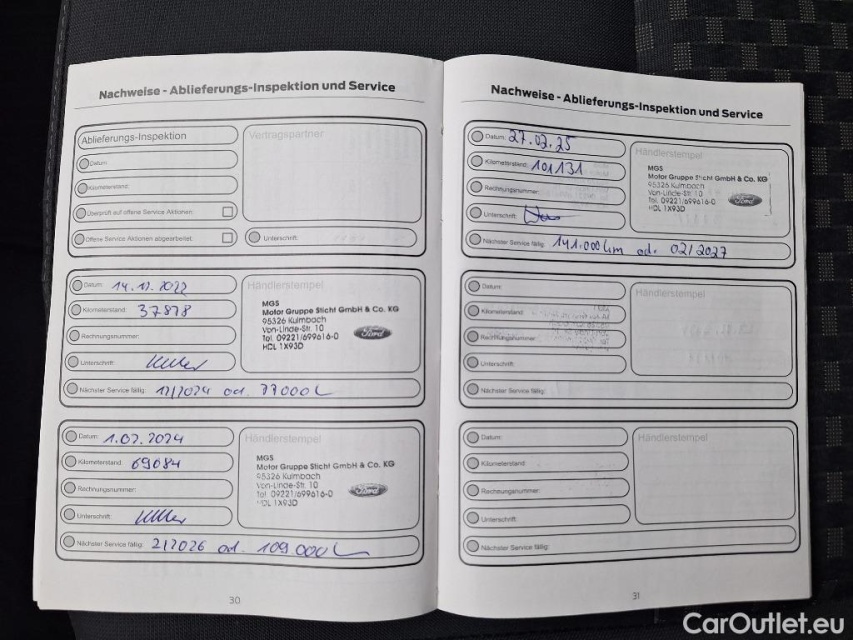 Nachweise - Ablieferungs-Inspektion und Service
Ablieferungs-Inspektion
Vertragspartner
Datum:
Kilometerstand:
Überprüft auf offene Service Aktionen:
Offene Service Aktionen abgearbeitet:
Unterschrift:
Datum: 14.12.2022
Kilometerstand: 37878
Rechnungsnummer:
Unterschrift:
Händlerstempel
MGS
Motor Gruppe Sticht GmbH & Co. KG
95326 Kulmbach
Von-Linde-Str. 10
Tel. 09221/699616-0
HDL 1X93D
Ford
Nächster Service fällig: 12/2024 od. 77000
Datum: 1.02.2024
Kilometerstand: 69084
Rechnungsnummer:
Unterschrift:
Händlerstempel
MGS
Motor Gruppe Sticht GmbH & Co. KG
95326 Kulmbach
Von-Linde-Str. 10
Tel. 09221/699616-0
HDL 1X93D
Ford
Nächster Service fällig: 2/2026 od. 109000
30
Nachweise - Ablieferungs-Inspektion und Service
Datum: 27.02.25
Kilometerstand: 101131
Rechnungsnummer:
Unterschrift:
Händlerstempel
MGS
Motor Gruppe Sticht GmbH & Co. KG
95326 Kulmbach
Von-Linde-Str. 10
Tel. 09221/699616-0
HDL 1X93D
Ford
Nächster Service fällig: 141.000 km od. 02/2027
Datum:
Kilometerstand:
Rechnungsnummer:
Unterschrift:
Händlerstempel
Nächster Service fällig:
Datum:
Kilometerstand:
Rechnungsnummer:
Unterschrift:
Händlerstempel
Nächster Service fällig:
31
CarOutlet.eu